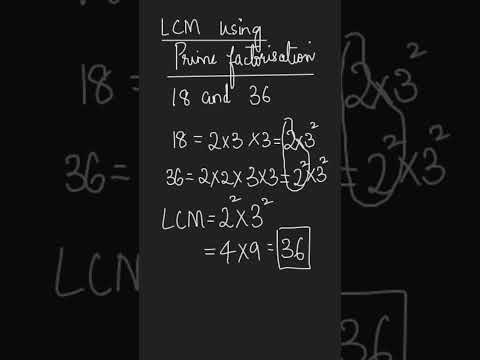 LCM using
Prime factorisation
18 and 36
18 = 2×3×3 = 2×3²
36 = 2×2×3×3 = 2²×3²
LCM = 2²×3²
= 4×9 = 36